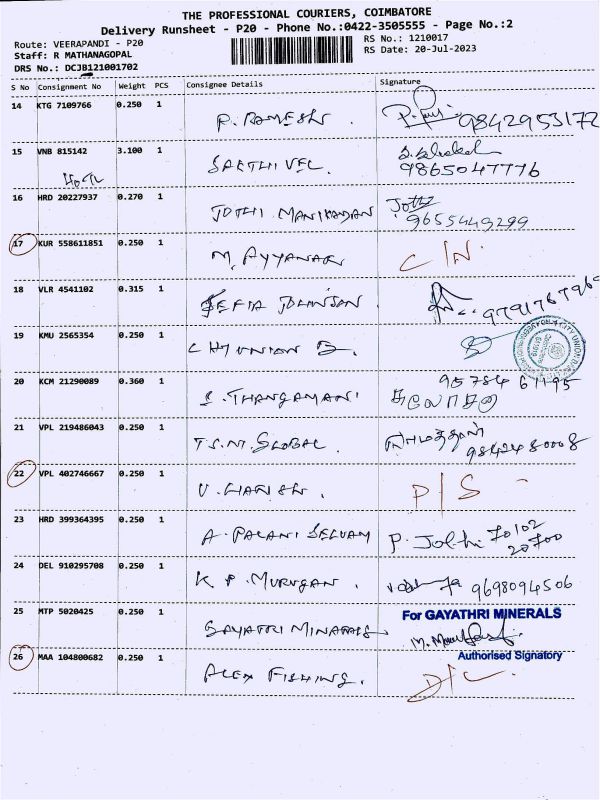 THE PROFESSIONAL COURIERS, COIMBATORE
Delivery Runsheet - P20 - Phone No.:0422-3505555 - Page No.:2
Route: VEERAPANDI - P20 RS No.: 1210017
Staff: R MATHANAGOPAL RS Date: 20-Jul-2023
DRS No.: DCJB121001702
S No Consignment No Weight PCS Consignee Details Signature
14 KTG 7109766 0.250 1 P. RAMESH. 9842953172
15 VNB 815142 3.100 1 SAKTHIVEL. 9865047776
16 HRD 20227937 0.270 1 JOTHI MANIKANDAN Jothi 9655449299
17 KUR 558611851 0.250 1 M. AYYANAR C/N.
18 VLR 4541102 0.315 1 JOHNSON. 9791767969
19 KMU 2565354 0.250 1 CITY UNION B.
20 KCM 21290089 0.360 1 S. THANGAMANI 95784 61195
21 VPL 219486043 0.250 1 T.S.M. GLOBAL. 98424 80008
22 VPL 402746667 0.250 1 V. HARISH. P/S -
23 HRD 399364395 0.250 1 A. PALANI SELVAM P. Jothi 70102 20700
24 DEL 910295708 0.250 1 K P. MURUGAN. 9698094506
25 MTP 5020425 0.250 1 GAYATRI MINARALS For GAYATHRI MINERALS
Authorised Signatory
26 MAA 104800682 0.250 1 ALEX FISHING. D/C